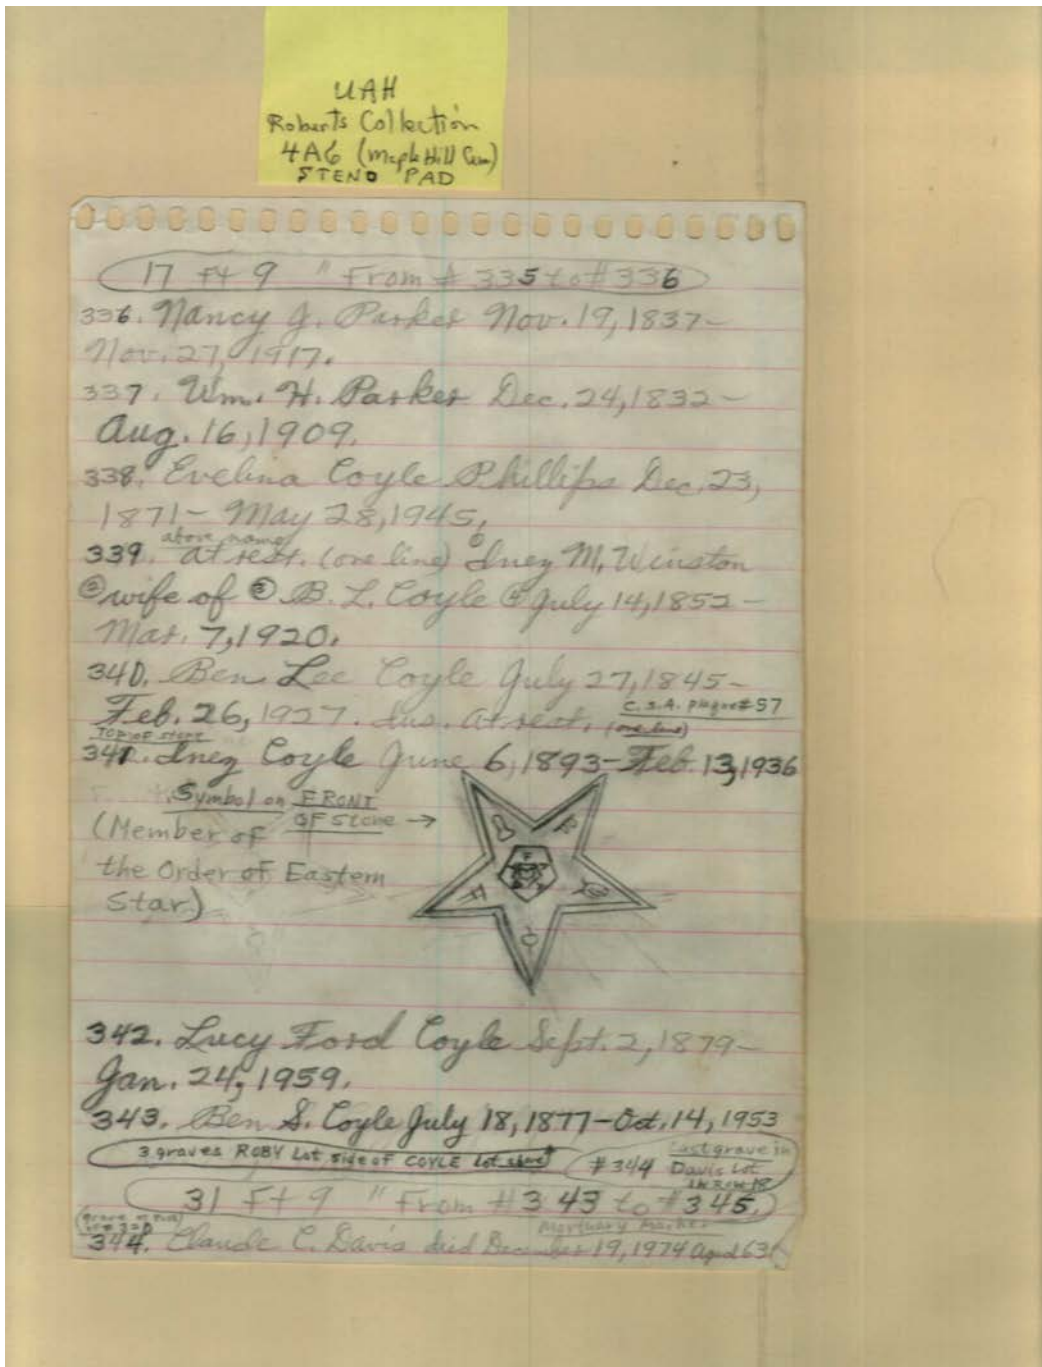 UAH
Roberts Collection
4A6 (Maple Hill Cem)
STENO PAD
17 Ft 9 " From # 335 to # 336
336. Nancy J. Parker Nov. 19, 1837-
Nov. 27, 1917.
337. Wm. H. Parker Dec. 24, 1832-
Aug. 16, 1909.
338. Evelina Coyle Phillips Dec. 23,
1871- May 28, 1945.
above name
339. at rest. (one line) Inez M. Winston
② wife of ③ B. L. Coyle ④ July 14, 1852-
Mar. 7, 1920.
340. Ben Lee Coyle July 27, 1845-
C.S.A. plaque #57
Feb. 26, 1927. Ins. At rest. (one line)
TOP OF stone
341. Inez Coyle June 6, 1893-Feb. 13, 1936
Symbol on FRONT
OF Stone →
(Member of
the Order of Eastern
Star)
F
342. Lucy Ford Coyle Sept. 2, 1879-
Jan. 24, 1959.
343. Ben S. Coyle July 18, 1877-Oct. 14, 1953
3 graves ROBY Lot side of COYLE Lot
Last grave in
#344 Davis Lot
IN ROW 18
31 Ft 9 " From # 343 to # 345.
Mortuary Marker
344. Claude C. Davis died December 19, 1974 Aged 63